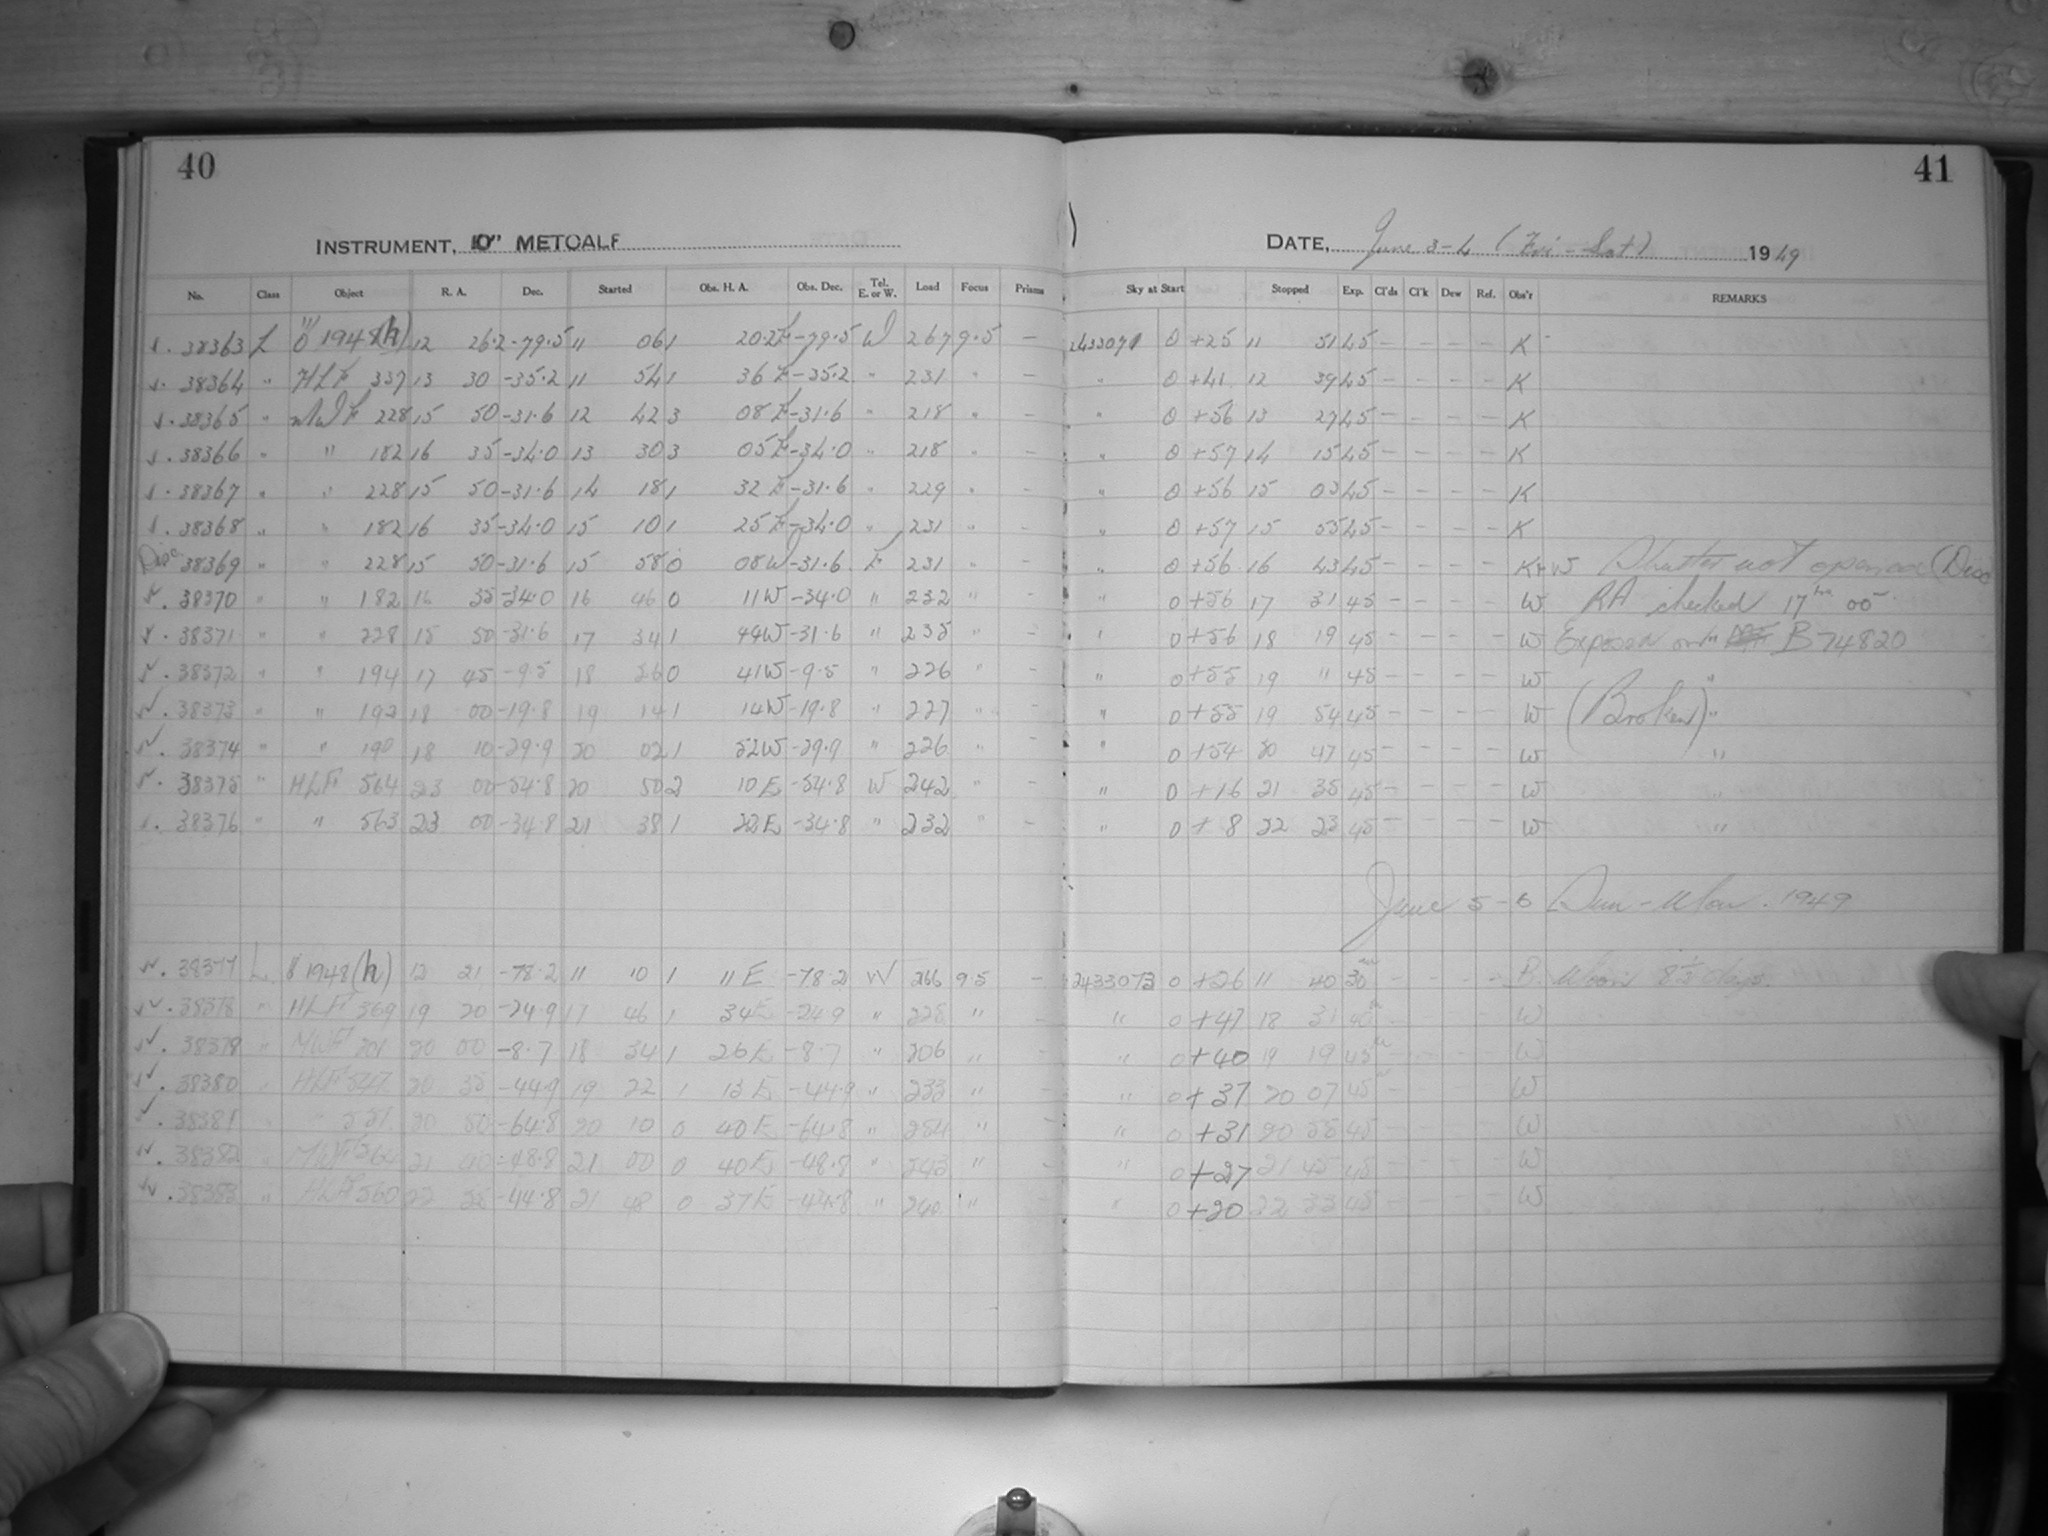 40
41
INSTRUMENT, 10" METCALF
DATE, June 3-4 (Fri - Sat) 1949
No. Class Object R. A. Dec. Started Obs. H. A. Obs. Dec. Tel. E. or W. Load Focus Prisms Sky at Start Stopped Exp. Cl'ds Cl'k Dew Ref. Obs'r REMARKS
38363 L 1948(h) 12 26.2 -79.5 11 06 1 20.2E -79.5 W 267 9.5 — 2433071 0 +25 11 51 45 - - - - K
38364 " HLF 337 13 30 -35.2 11 54 1 36 E -35.2 " 231 " - " 0 +41 12 39 45 - - - - K
38365 " MWF 228 15 50 -31.6 12 42 3 08 E -31.6 " 218 " - " 0 +56 13 27 45 - - - - K
38366 " " 182 16 35 -34.0 13 30 3 05 E -34.0 " 218 " - " 0 +57 14 15 45 - - - - K
38367 " " 228 15 50 -31.6 14 18 1 32 E -31.6 " 229 " - " 0 +56 15 03 45 - - - - K
38368 " " 182 16 35 -34.0 15 10 1 25 E -34.0 " 231 " - " 0 +57 15 55 45 - - - - K
Disc 38369 " " 228 15 50 -31.6 15 58 0 08 W -31.6 E 231 " - " 0 +56 16 43 45 - - - - K+W Shutter not opened (Disc
38370 " " 182 16 35 -34.0 16 46 0 11W -34.0 " 232 " - " 0 +56 17 31 45 - - - - W RA checked 17 hrs 05
38371 " " 228 15 50 -31.6 17 34 1 44W -31.6 " 235 " - " 0 +56 18 19 45 - - - - W Exposed on B74820
38372 " " 194 17 45 -9.5 18 26 0 41W -9.5 " 226 " - " 0 +55 19 11 45 - - - - W "
38373 " " 192 18 00 -19.8 19 14 1 14W -19.8 " 227 " - " 0 +55 19 54 45 - - - - W (Broken) "
38374 " " 190 18 10 -29.9 20 02 1 52W -29.9 " 226 " - " 0 +54 20 47 45 - - - - W "
38375 " HLF 564 23 00 -54.8 20 50 2 10 E -54.8 W 242 " - " 0 +16 21 35 45 - - - - W "
38376 " " 563 23 00 -34.8 21 38 1 22 E -34.8 " 232 " - " 0 + 8 22 23 45 - - - - W "
June 5-6 Sun - Mon. 1949
38377 L 1948(h) 12 21 -78.2 11 10 1 11 E -78.2 W 266 9.5 - 2433073 0 +26 11 40 30 - - - - B Moon 8 1/3 days.
38378 " HLF 369 19 20 -24.9 17 46 1 34E -24.9 " 228 " - " 0 +47 18 31 - - - - W
38379 " MWF 201 20 00 -8.7 18 34 1 26 E -8.7 " 206 " - " 0 +40 19 19 45 - - - - W
38380 HLF 20 35 -44.9 19 22 1 13 E -44.9 " 233 " - " 0 +37 20 07 45 - - - - W
38381 20 50 -64.8 20 10 0 40 E -64.8 " " - " 0 +31 20 55 45 - - - - W
38382 MWF 21 40 -48.8 21 00 0 40 E -48.8 " 243 " - " 0 +27 21 45 45 - - - - W
38383 " HLF 560 22 -44.8 21 48 0 37 E -44.8 " 240 " - " 0 +20 22 33 45 - - - - W